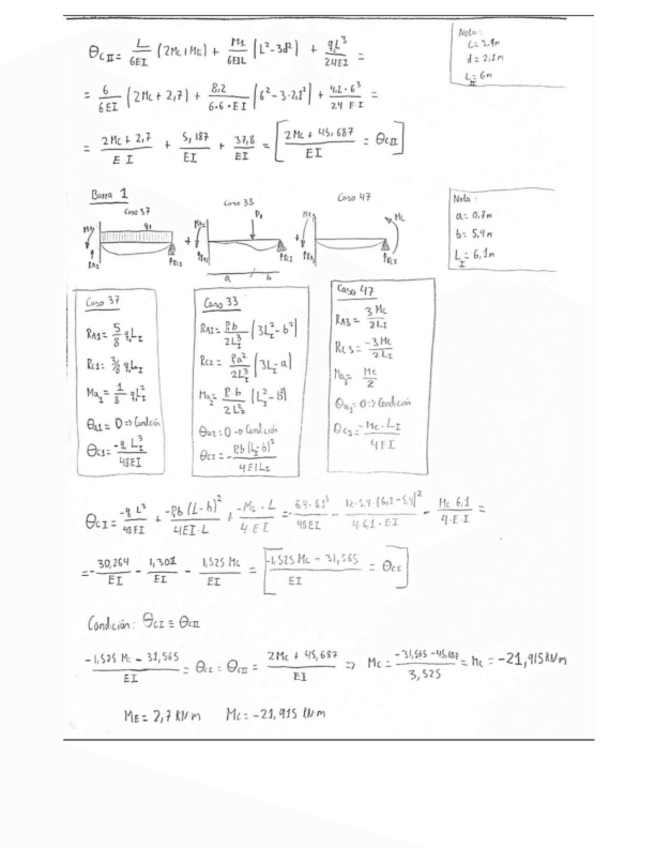 Nota:
c=3,9m
d=2,1m
L_II=6m
θ_CII = L/6EI (2Mc+ME) + Mc/6EIL |L²-3d²| + qL³/24EI =
= 6/6EI (2Mc+2,7) + 8,2/6·6·EI |6²-3·2,1²| + 4,2·6³/24·E·I =
= 2Mc+2,7/EI + 5,187/EI + 37,8/EI = [2Mc+45,687/EI = θ_CII]
Barra 1
Caso 37 Caso 33 Caso 47
Nota:
a=0,7m
b=5,4m
L_I=6,1m
Caso 37
R_A1 = 5/8 qL_I
R_C1 = 3/8 qL_I
Ma_1 = 1/8 qL_I²
θ_a1 = 0 => Condición
θ_C1 = -q L_I³/48EI
Caso 33
R_A2 = P.b/2L_I³ (3L_I²-b²)
R_C2 = Pa²/2L_I³ (3L_I-a)
Ma_2 = P.b/2L_I² (L_I²-b²)
θ_a2 = 0 -> Condición
θ_C2 = -Pb(L_I-b)²/4EIL_I
Caso 47
R_A3 = 3Mc/2L_I
R_C3 = -3Mc/2L_I
Ma_3 = Mc/2
θ_a3 = 0 => Condición
θ_C3 = -Mc·L_I/4EI
θ_CI = -q L³/48EI + -Pb(L-b)²/4EI·L + -Mc·L/4EI = -6,4·6,1³/48EI - 12·5,4·(6,1-5,4)²/4·6,1·EI - Mc 6,1/4·E·I =
= -30,264/EI - 1,301/EI - 1,525 Mc/EI = [-1,525 Mc - 31,565/EI = θ_CI]
Condición: θ_CI ≡ θ_CII
-1,525 Mc - 31,565/EI = θ_CI = θ_CII = 2Mc + 45,687/EI => Mc = -31,565-45,687/3,525 = Mc = -21,915 kNm
ME = 2,7 kNm Mc = -21,915 kNm